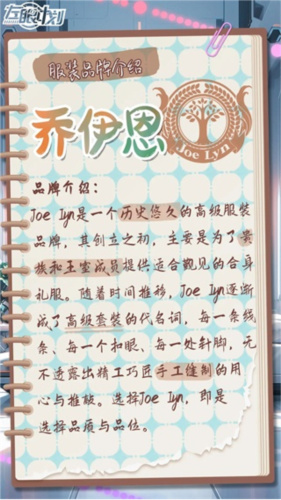 左眼计划
服装品牌介绍
乔伊恩
Joe Lyn
品牌介绍：
Joe Lyn是一个历史悠久的高级服装
品牌，其创立之初，主要是为了贵
族和王室成员提供适合觐见的合身
礼服。随着时间推移，Joe Lyn逐渐
成了高级套装的代名词，每一条线
条、每一个扣眼、每一处针脚，无
不透露出精工巧匠手工缝制的用
心与推敲。选择Joe Lyn，即是
选择品质与品位。